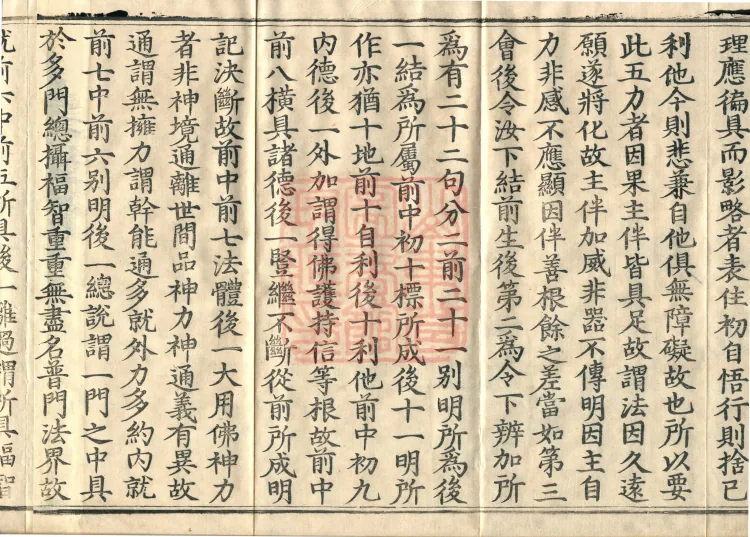 理應徧具而影略者表住初自悟行則捨己
利他今則悲兼自他俱無障礙故也所以要
此五力者因果主伴皆具足故謂法因久遠
願遂將化故主伴加威非器不傳明因主自
力非感不應顯因伴善根餘之差當如第三
會後令汝下結前生後第二爲令下辨加所
爲有二十二句分二前二十一別明所爲後
一結爲所屬前中初十標所成後十一明所
作亦猶十地前十自利後十利他前中初九
内德後一外加謂得佛護持信等根故前中
前八橫具諸德後一豎繼不斷從前所成明
記決斷故前中前七法體後一大用佛神力
者非神境通離世間品神力神通義有異故
通謂無擁力謂幹能通多就外力多約内就
前七中前六別明後一總說謂一門之中具
於多門總攝福智重重無盡名普門法界故
就前六中前五所具後一離過謂所具福智